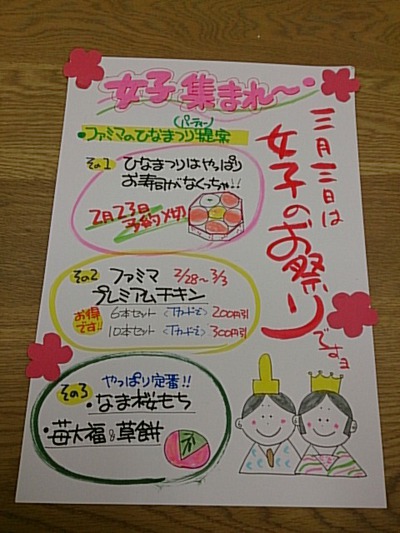 女子集まれ〜
三月三日は
女子のお祭り
ですョ
(パーティー)
・ファミマのひなまつり提案
その1 ひなまつりはやっぱり
お寿司がなくっちゃ!!
2月23日
予約〆切
その2 ファミマ 2/28〜3/3
プレミアムチキン
お得です!!
6本セット 〈Tカードで〉 200円引
10本セット 〈Tカードで〉 300円引
その3 やっぱり定番!!
・なま桜もち
・苺大福&草餅